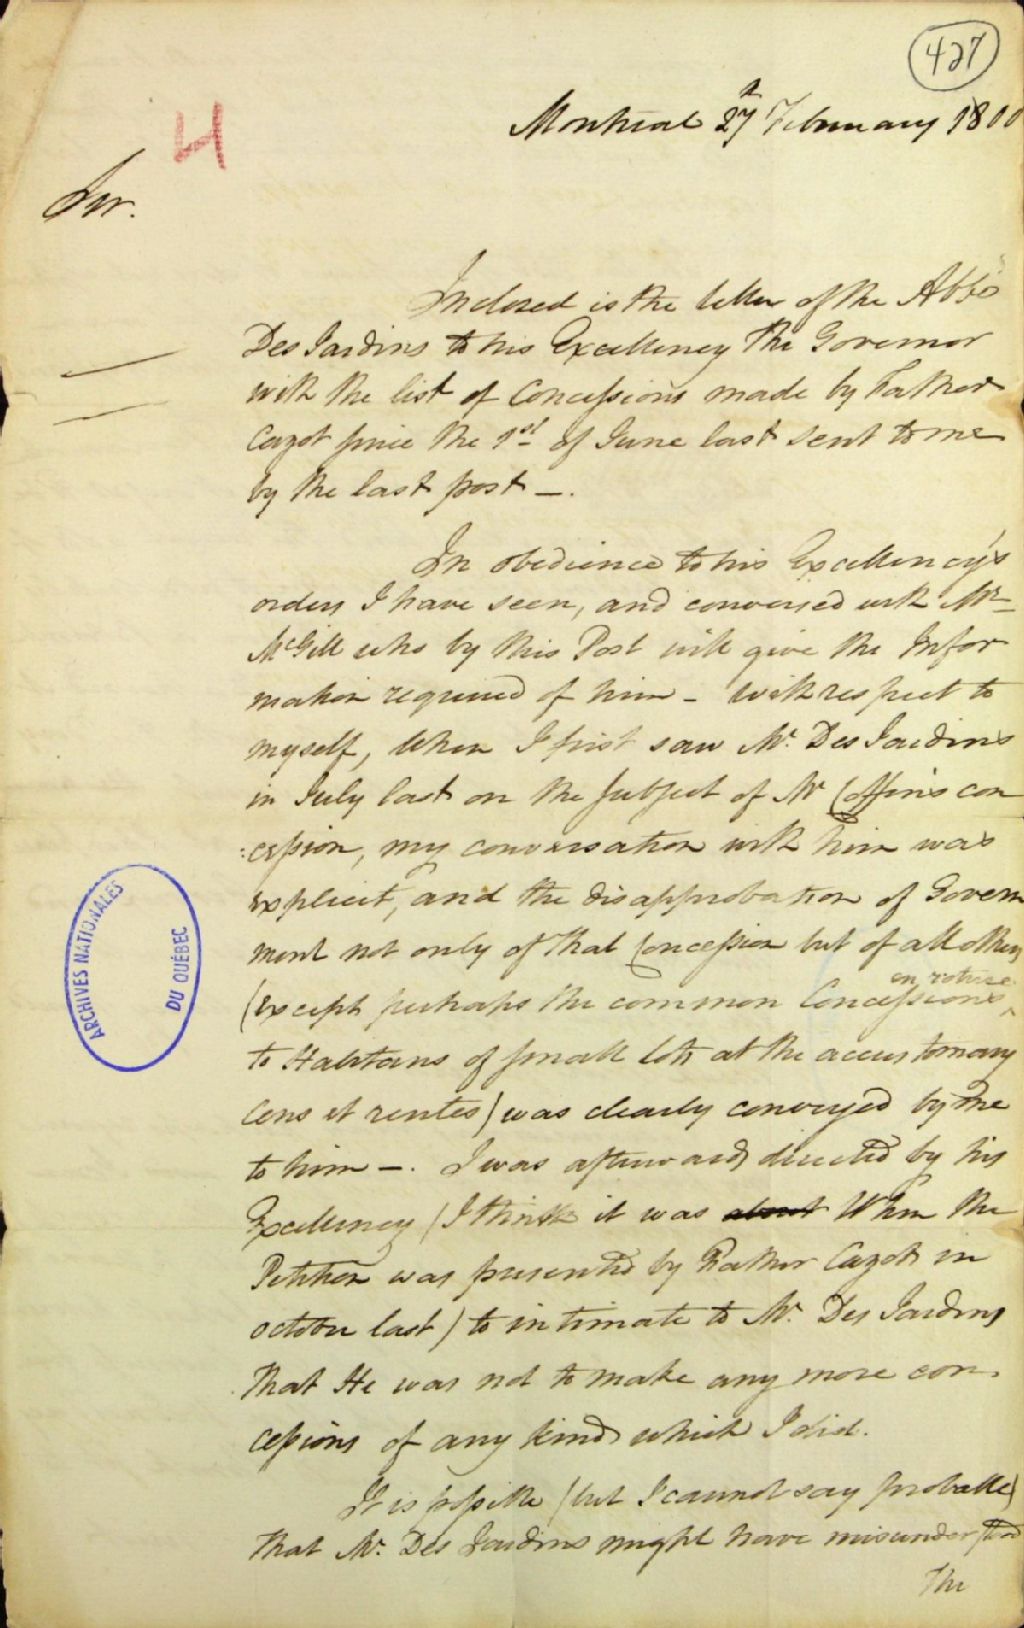 427
Montreal 27th February 1800
4
Sir.
Inclosed is the letter of the Abbé
Des Jardins to his Excellency The Governor
with the list of Concessions made by Father
Cazot since the 1st of June last sent to me
by the last post —.
In obedience to his Excellency's
orders I have seen, and conversed with Mr
McGill who by this Post will give the Infor
mation required of him - With respect to
myself, When I first saw Mr. Des Jardins
in July last on the subject of Mr Coffin's con
:cession, my conversation with him was
explicit, and the disapprobation of Govern
ment not only of that Concession but of all others
en roture
(except perhaps the common Concessions ^
to Habitans of small lots at the accustomary
Cens et rentes) was clearly conveyed by me
to him —. I was afterwards directed by his
Excellency (I think it was about When the
Petition was presented by Father Cazot in
october last) to intimate to Mr. Des Jardins
that He was not to make any more con
cessions of any kind which I did.
It is possible (but I cannot say probable)
that Mr. Des Jardins might have misunderstood
The
ARCHIVES NATIONALES
DU QUÉBEC